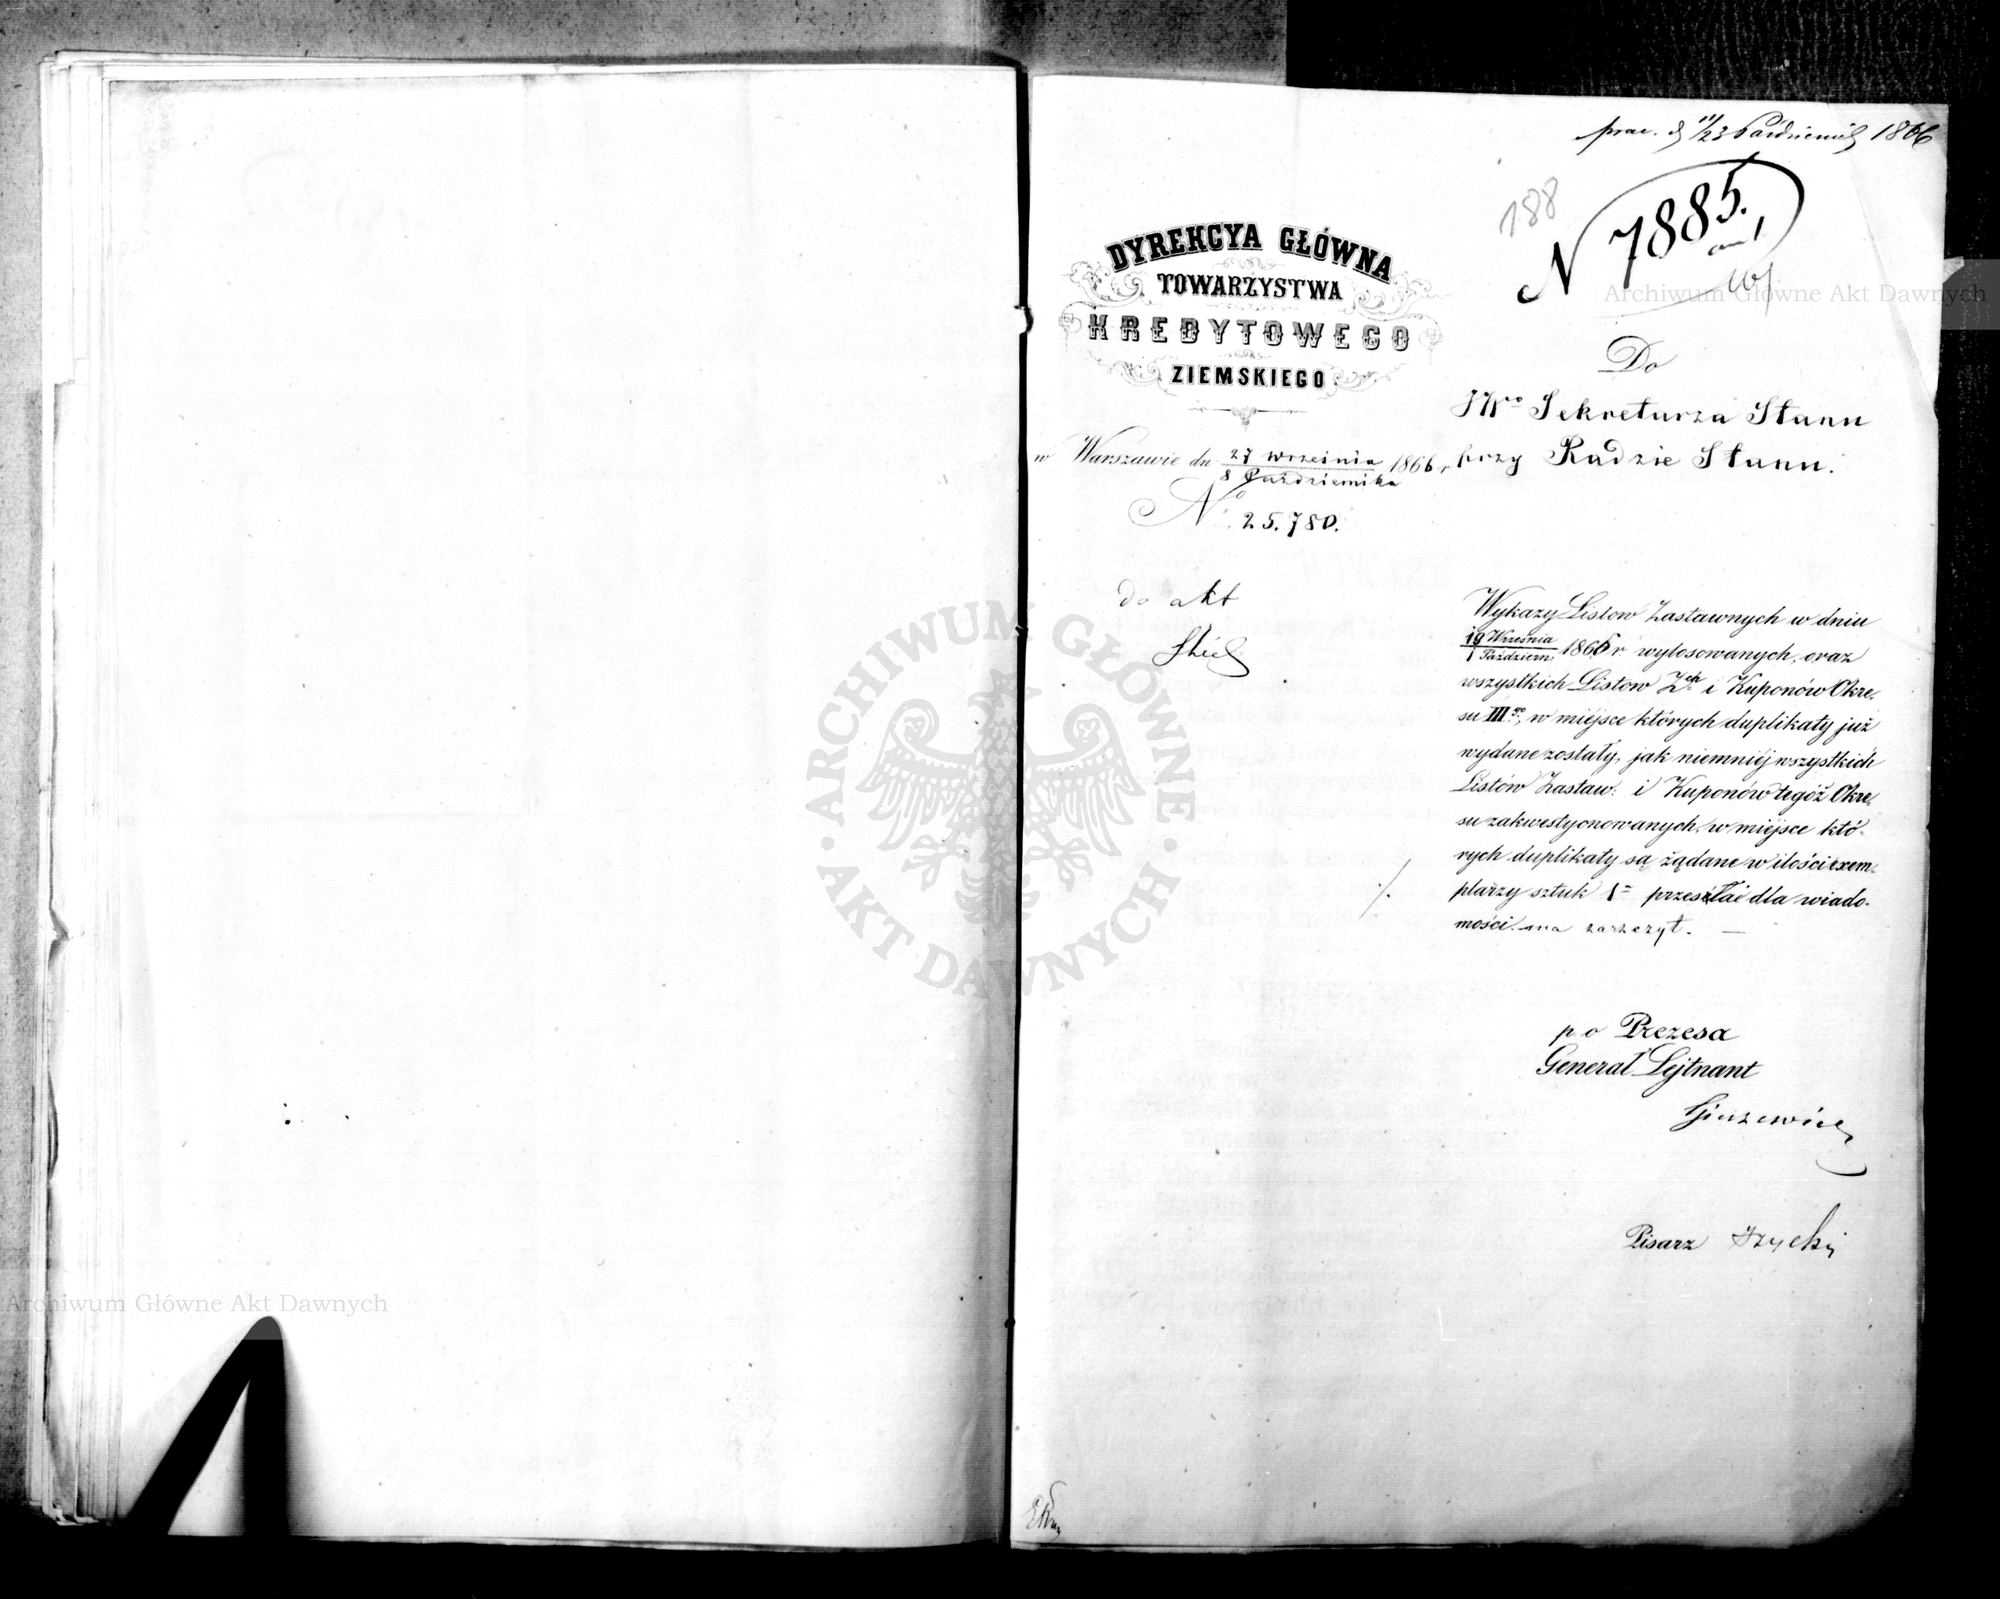 prae. d 11/23 Października 1866
188
N 7885.
DYREKCYA GŁÓWNA
TOWARZYSTWA
KREDYTOWEGO
ZIEMSKIEGO.
w Warszawie dn 27 Września / 8 Października 1866 r.
N° 25.780.
Do
JWo Sekretarza Stanu
przy Radzie Stanu.
do akt
Wykazy Listow Zastawnych w dniu
19 Września / 1 Paździer. 1866 r wylosowanych, oraz
wszystkich Listow Zch i Kuponów Okre-
su III go, w miejsce których duplikaty już
wydane zostały, jak niemniéj wszystkich
Listów Zastaw: i Kuponów tegoż Okre-
su zakwestyonowanych, w miejsce któ-
rych duplikaty są żądane w ilości exem-
plarzy sztuk 1 przesłać dla wiado-
mości ma zaszczyt. —
p o Prezesa
Generał Lejtnant
Pisarz
ARCHIWUM GŁÓWNE AKT DAWNYCH
Archiwum Główne Akt Dawnych
Archiwum Główne Akt Dawnych